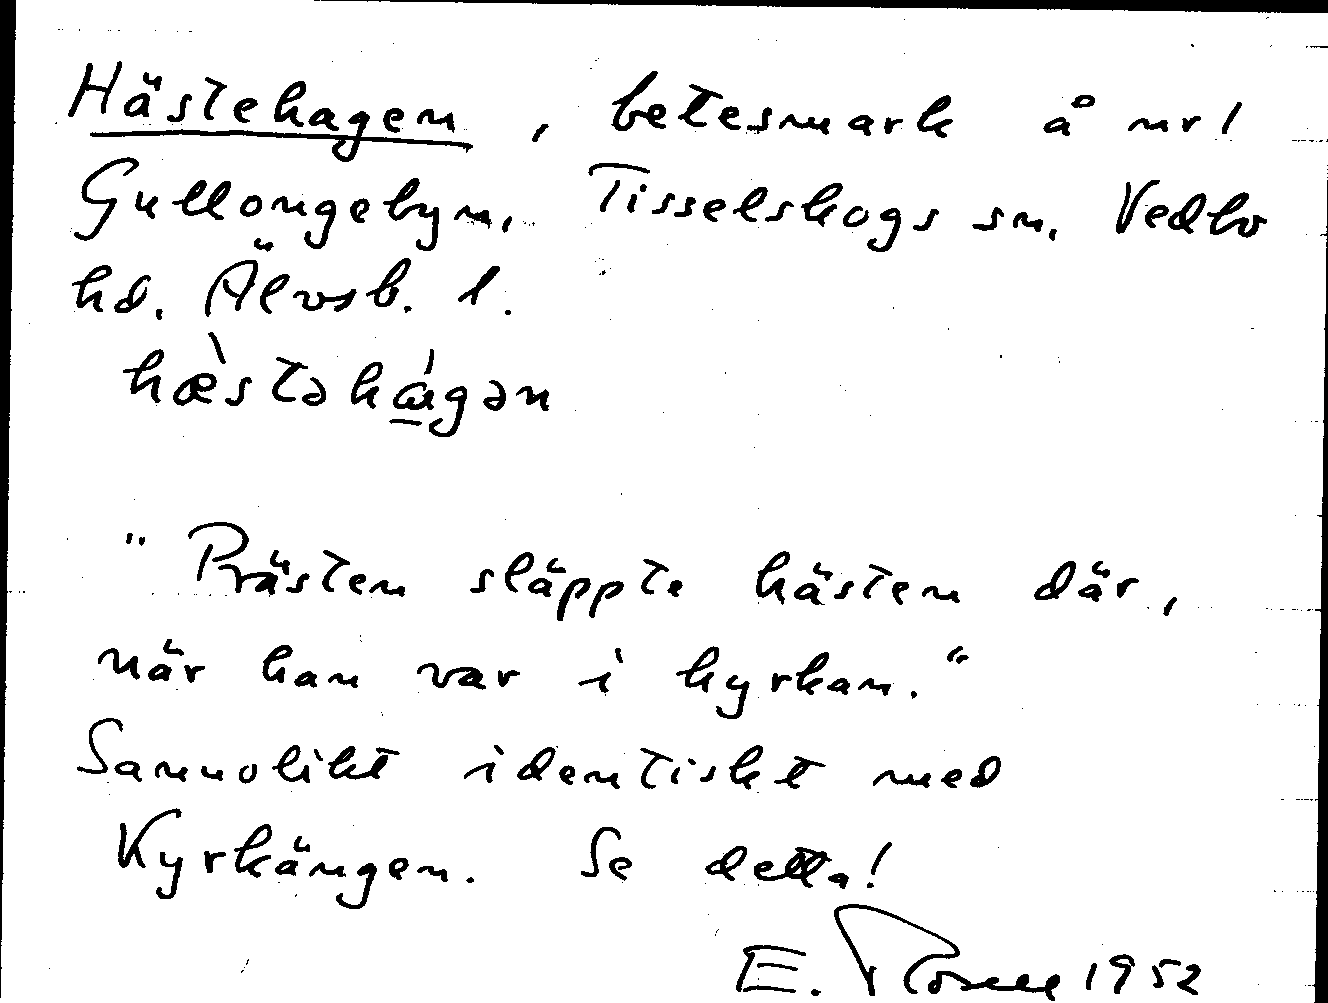 Hästehagen, betesmark å nr 1
Gullongebyn, Tisselskogs sn. Vedbo
hd. Älvsb. l.
hæ̀stəhág̣ən
"Prästen släppte hästen där,
när han var i kyrkan."
Sannolikt identiskt med
Kyrkängen. Se detta!
E. 1952